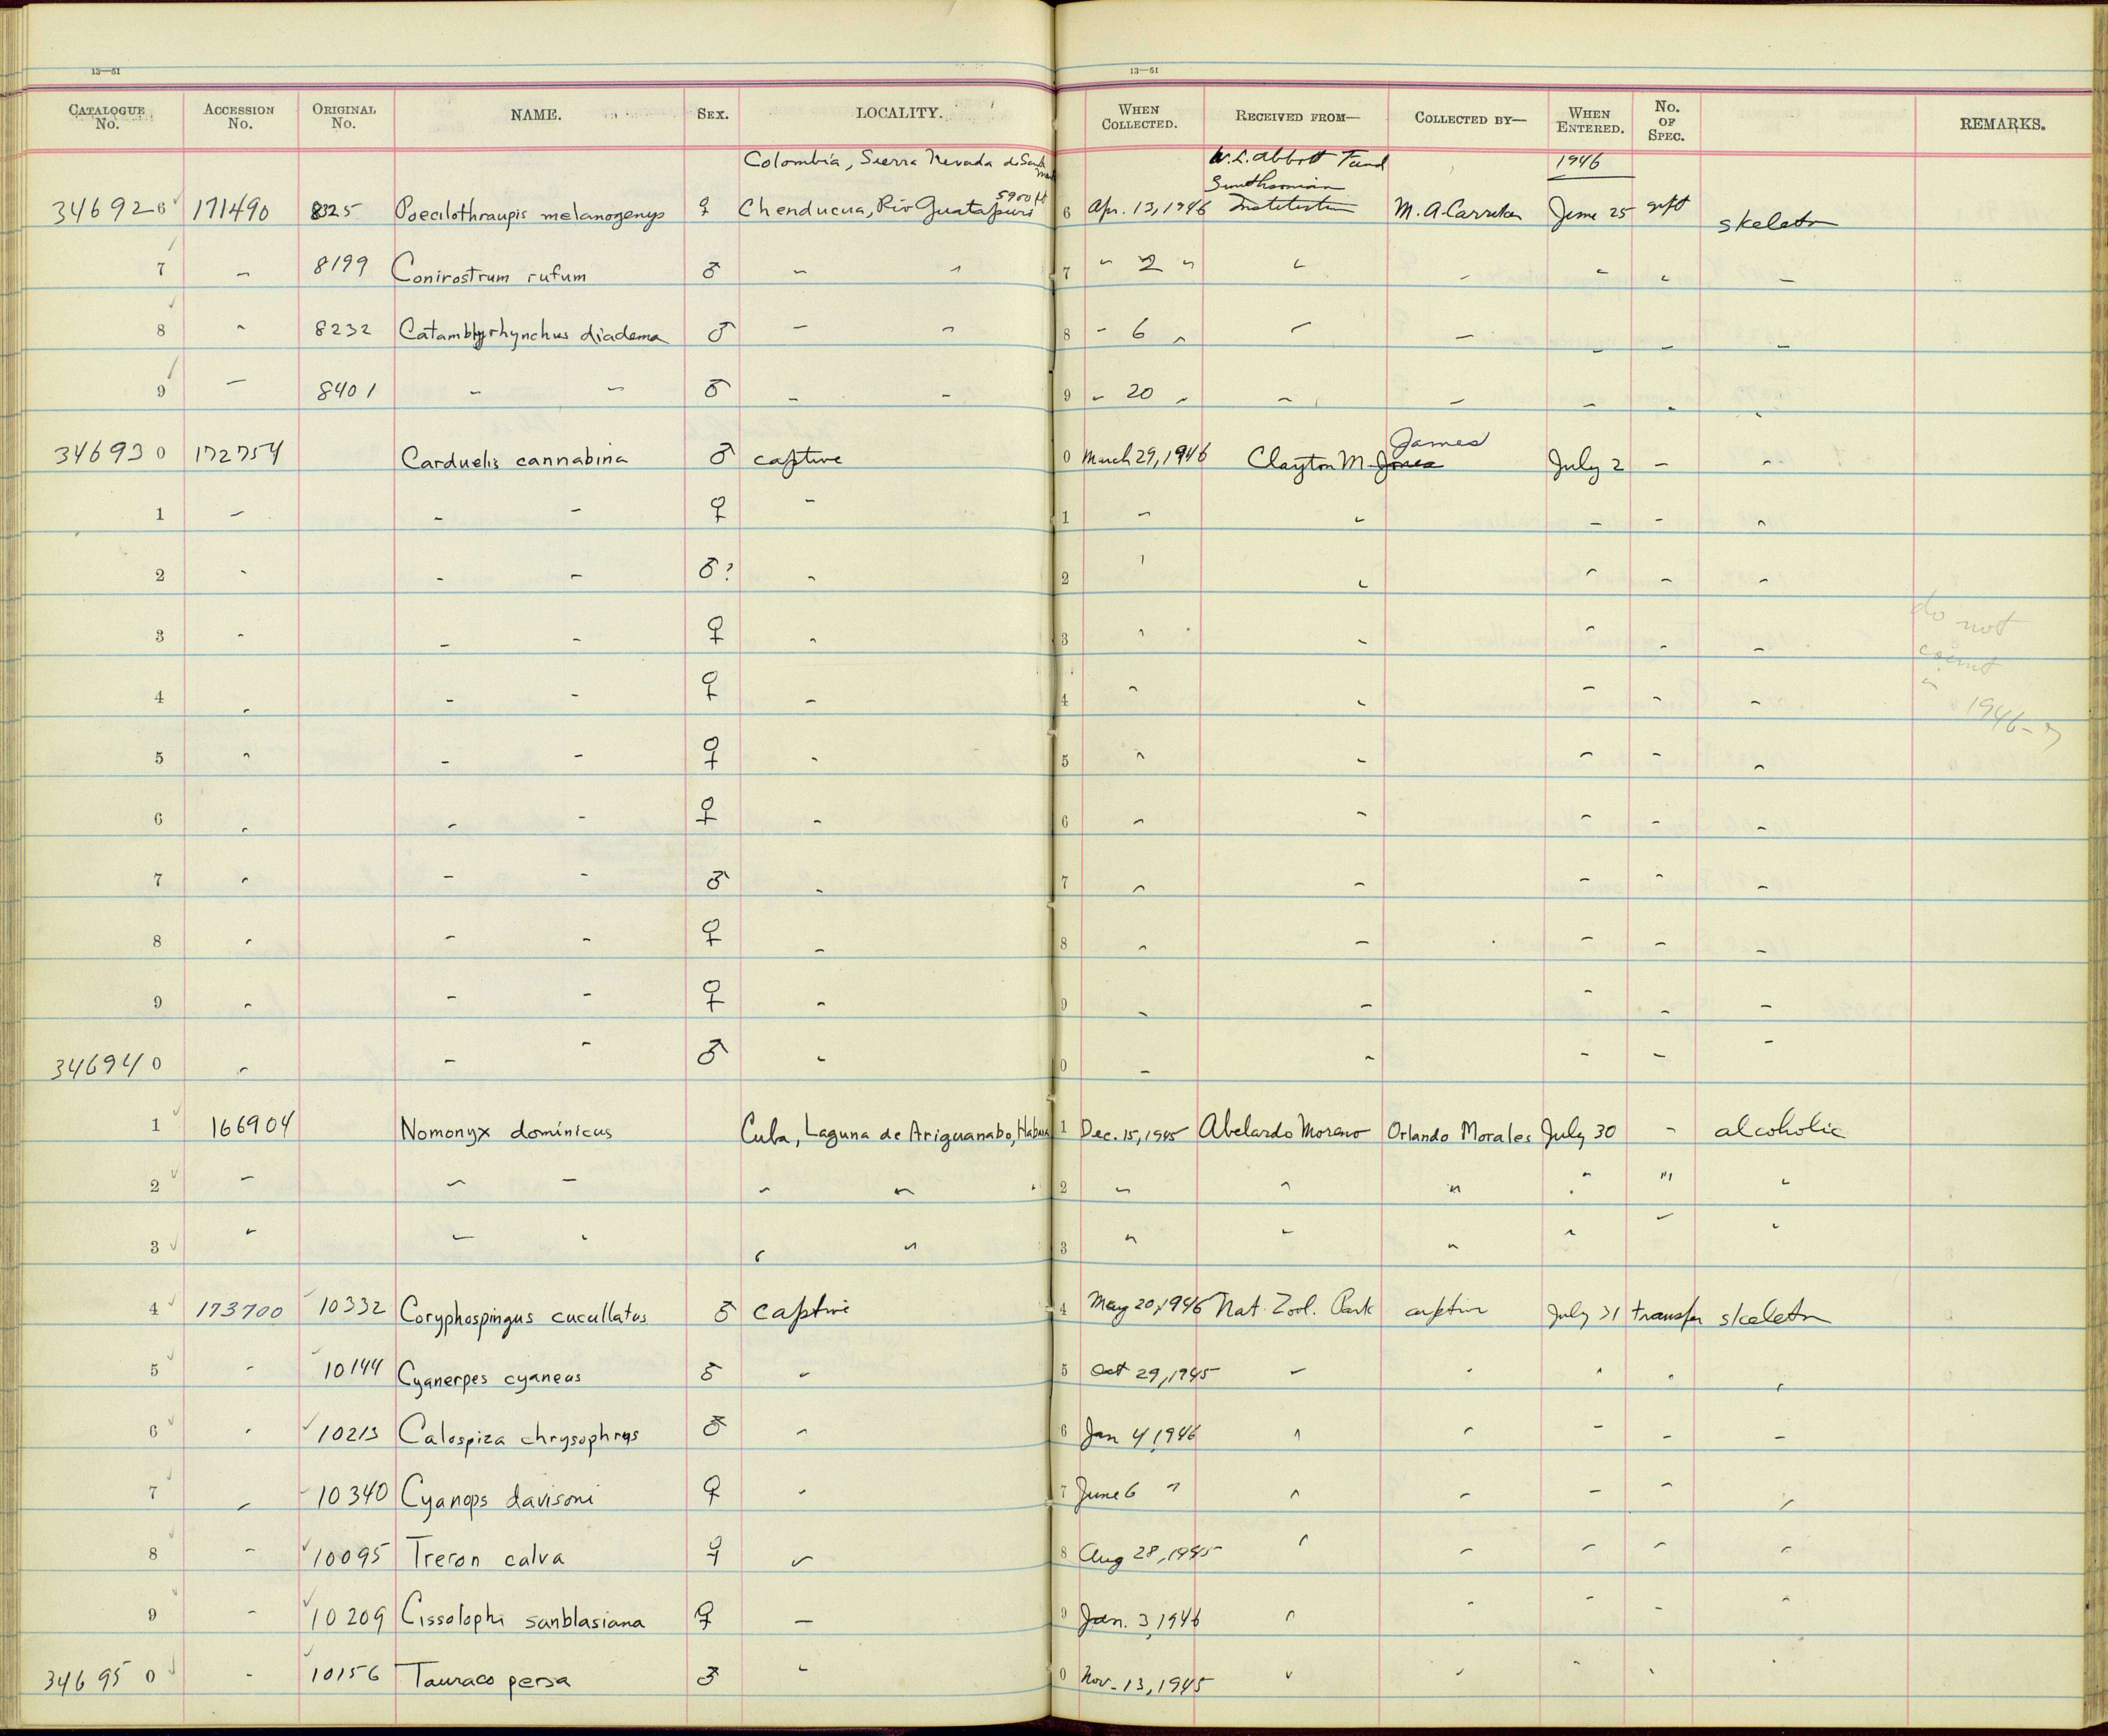 13—51 13—51
CATALOGUE No. ACCESSION No. ORIGINAL No. NAME. SEX. LOCALITY. WHEN COLLECTED. RECEIVED FROM— COLLECTED BY— WHEN ENTERED. No. OF SPEC. REMARKS.
Colombia, Sierra Nevada de Santa W. L. Abbott Fund 1946
5900 ft Smithsonian
346926 171490 8325 Poecilothraupis melanogenys ♀ Chenducua, Rio Guatapuri 6 Apr. 13, 1946 Institution M. A. Carriker June 25 gift skeleton
7 " 8199 Conirostrum rufum ♂ " " 7 " 2 " " " " " "
8 " 8232 Catamblyrhynchus diadema ♂ " " 8 " 6 " " " " " "
9 " 8401 " " ♂ " " 9 " 20 " " " " " "
James
346930 172754 Carduelis cannabina ♂ captive 0 March 29, 1946 Clayton M. Jones July 2 " "
1 " " " ♀ " 1 " " " " "
2 " " " ♂? " 2 " " " " "
3 " " " ♀ " 3 " " " " " do not
count
4 " " " ♀ " 4 " " " " " " 1946-7
5 " " " ♀ " 5 " " " " "
6 " " " ♀ " 6 " " " " "
7 " " " ♂ " 7 " " " " "
8 " " " ♀ " 8 " " " " "
9 " " " ♀ " 9 " " " " "
346940 " " " ♂ " 0 " " " " "
1 166904 Nomonyx dominicus Cuba, Laguna de Ariguanabo, Habana 1 Dec. 15, 1945 Abelardo Moreno Orlando Morales July 30 " alcoholic
2 " " " " " " 2 " " " " " "
3 " " " " " 3 " " " " " "
4 173700 10332 Coryphospingus cucullatus ♂ captive 4 May 20, 1946 Nat. Zool. Park captive July 31 transfer skeleton
5 " 10144 Cyanerpes cyaneus ♂ " 5 Oct 29, 1945 " " " " "
6 " 10213 Calospiza chrysophrys ♂ " 6 Jan 4, 1946 " " " " "
7 " 10340 Cyanops davisoni ♀ " 7 June 6 " " " " " "
8 " 10095 Treron calva ♀ " 8 Aug 28, 1945 " " " " "
9 " 10209 Cissolopha sanblasiana ♀ " 9 Jan. 3, 1946 " " " " "
346950 " 10156 Tauraco persa ♂ " 0 Nov. 13, 1945 " " " " "